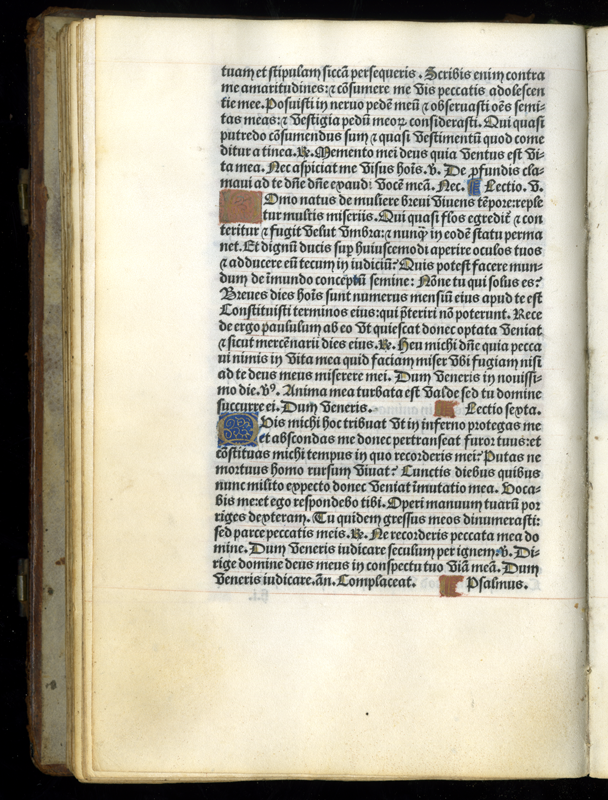 tuam et stipulam siccã persequeris. Scribis enim contra
me amaritudines: ⁊ cõsumere me vis peccatis adolescen
tie mee. Posuisti in neruo pedẽ meũ ⁊ obseruasti oẽs semi-
tas meas: ⁊ vestigia pedũ meoꝝ considerasti. Qui quasi
putredo cõsumendus sum ⁊ quasi vestimentũ quod come
ditur a tinea. ℟. Memento mei deus quia ventus est vi-
ta mea. Nec aspiciat me visus hoĩs. ℣. De ꝓfundis cla-
maui ad te dñe dñe exaudi vocẽ meã. Nec. Lectio. v.
Omo natus de muliere breui viuens tẽpore: reple
tur multis miseriis. Qui quasi flos egredit᷑ ⁊ con
teritur ⁊ fugit velut vmbra: ⁊ nunq̃ in eodẽ statu perma
net. Et dignũ ducis suꝑ huiuscemodi aperire oculos tuos
⁊ adducere eũ tecum in iudiciũ? Quis potest facere mun-
dum de ĩmundo conceptũ semine: Nõne tu qui solus es?
Breues dies hoĩs sunt numerus mensiũ eius apud te est
Constituisti terminos eius: qui p̃teriri nõ poterunt. Rece
de ergo paululum ab eo vt quiescat donec optata veniat
⁊ sicut mercẽnarii dies eius. ℟. Heu michi dñe quia pecca
ui nimis in vita mea quid faciam miser vbi fugiam nisi
ad te deus meus miserere mei. Dum veneris in nouissi-
mo die. ℣ꝰ. Anima mea turbata est valde sed tu domine
succurre ei. Dum veneris. Lectio sexta.
Vis michi hoc tribuat vt in inferno protegas me
et abscondas me donec pertranseat furor tuus: et
cõstituas michi tempus in quo recorderis mei? Putas ne
mortuus homo rursum viuat? Cunctis diebus quibus
nunc milito expecto donec veniat ĩmutatio mea. Voca-
bis me: et ego respondebo tibi. Operi manuum tuarũ por
riges dexteram. Tu quidem gressus meos dinumerasti:
sed parce peccatis meis. ℟. Ne recorderis peccata mea do
mine. Dum veneris iudicare seculum per ignem. ℣. Di-
rige domine deus meus in conspectu tuo viã meã. Dum
veneris iudicare. añ. Complaceat. Psalmus.